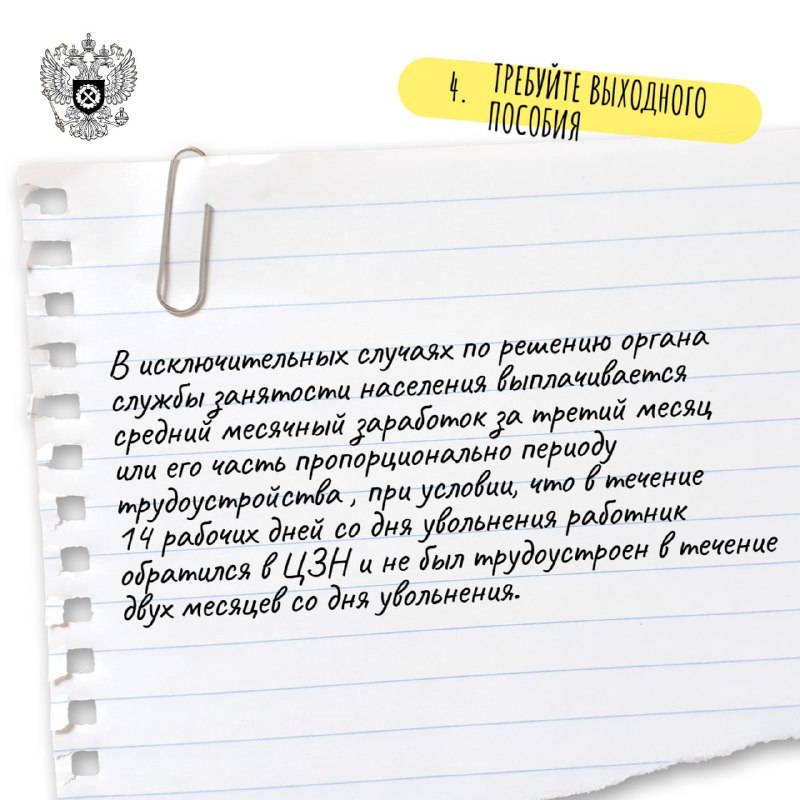 4. ТРЕБУЙТЕ ВЫХОДНОГО
ПОСОБИЯ
В исключительных случаях по решению органа
службы занятости населения выплачивается
средний месячный заработок за третий месяц
или его часть пропорционально периоду
трудоустройства , при условии, что в течение
14 рабочих дней со дня увольнения работник
обратился в ЦЗН и не был трудоустроен в течение
двух месяцев со дня увольнения.